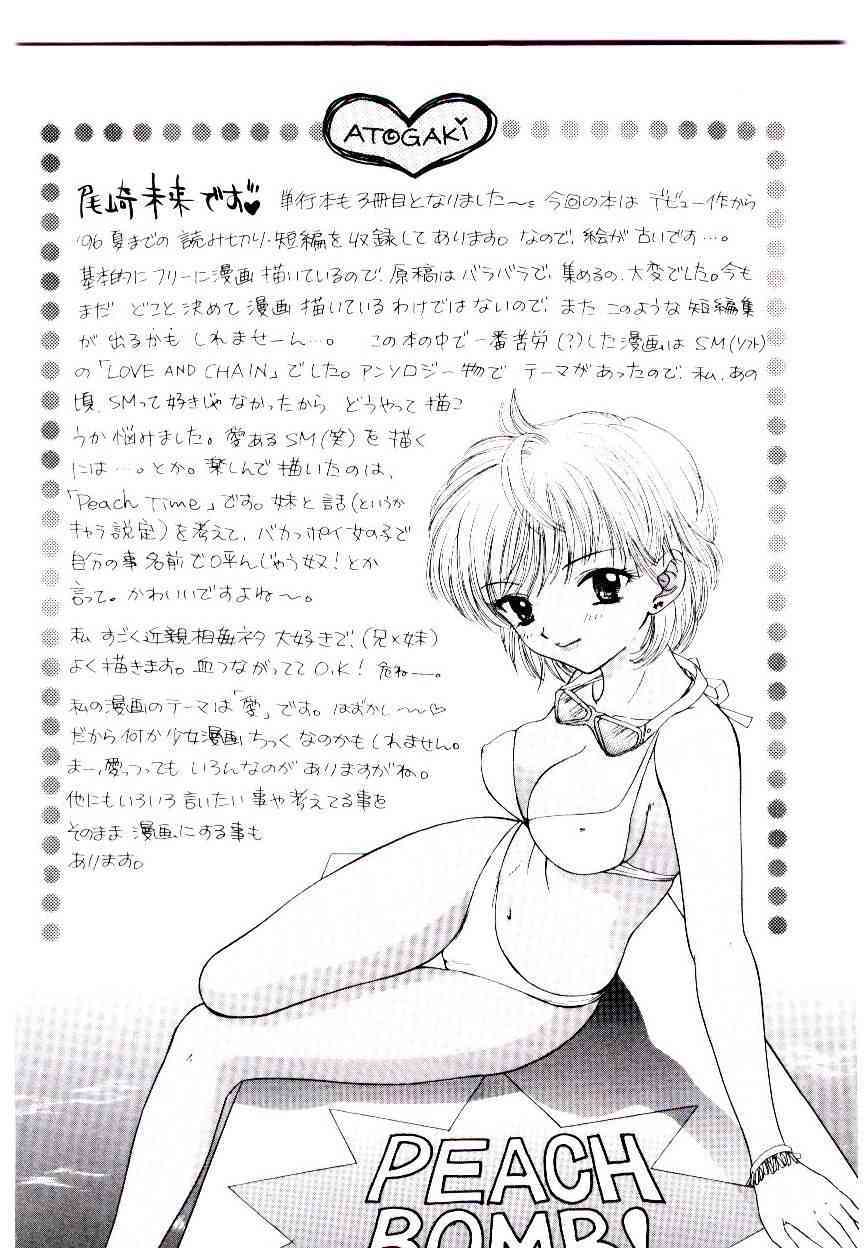 ATOGAKi
尾崎未来です♥ 単行本も3冊目となりました〜。今回の本は デビュー作から
'96夏までの 読み切り・短編を収録してあります。なので、絵が古いです…。
基本的にフリーに漫画描いているので、原稿はバラバラで、集めるの、大変でした。今も
まだ どこと決めて漫画描いているわけではないので、また このような短編集
が出るかもしれませーん…。 この本の中で一番苦労(?)した漫画は SM(ソフト)
の「LOVE AND CHAIN」でした。アンソロジー物で テーマがあったので、私、あの
頃、SMって好きじゃなかったから どうやって描こ
うか悩みました。愛あるSM(笑)を描く
には…。とか。楽しんで描いたのは、
「Peach Time」です。妹と話(というか
キャラ設定)を考えて、バカっポイ女の子で
自分の事名前で呼んじゃう奴!とか
言って。かわいいですよね〜。
私 すごく近親相姦ネタ大好きで、(兄×妹)
よく描きます。血つながっててO.K! 危ねー。
私の漫画のテーマは「愛」です。はずかし〜♡
だから何か少女漫画ちっくなのかもしれません。
まー、愛っつっても いろんなのがありますがね。
他にもいろいろ言いたい事や考えてる事を
そのまま漫画にする事も
あります。
PEACH
BOMB!